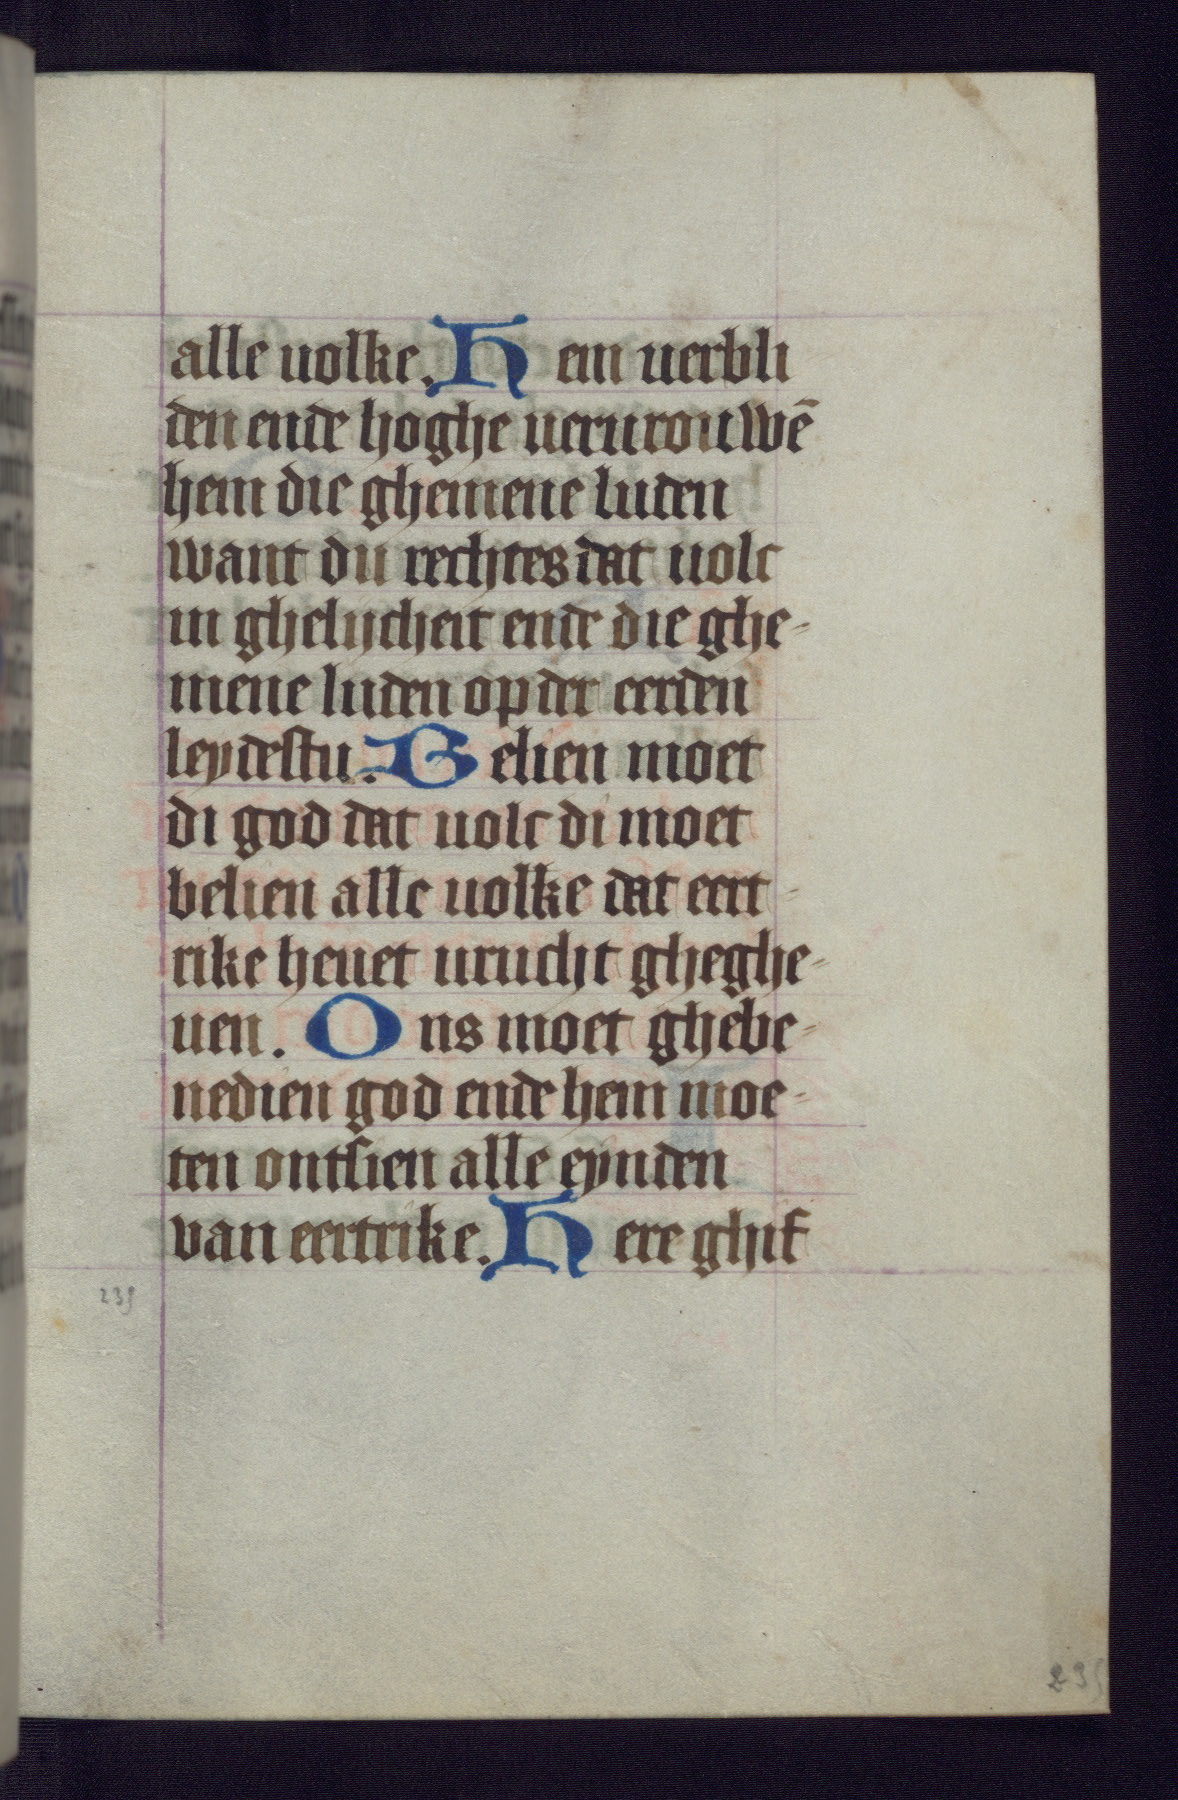 alle uolke. Hem uerbli
den ende hoghe uerurouwē
hem die ghemene luden
want du rechtes dat uolc
in ghelijcheit ende die ghe-
mene luden op der eerden
leydestu. Belien moet
di god dat uolc di moet
belien alle uolke dat eert-
rike heuet urucht gheghe-
uen. Ons moet ghebe-
nedien god ende hem moe-
ten ontsien alle eynden
van eertrike. Here ghif
235
235